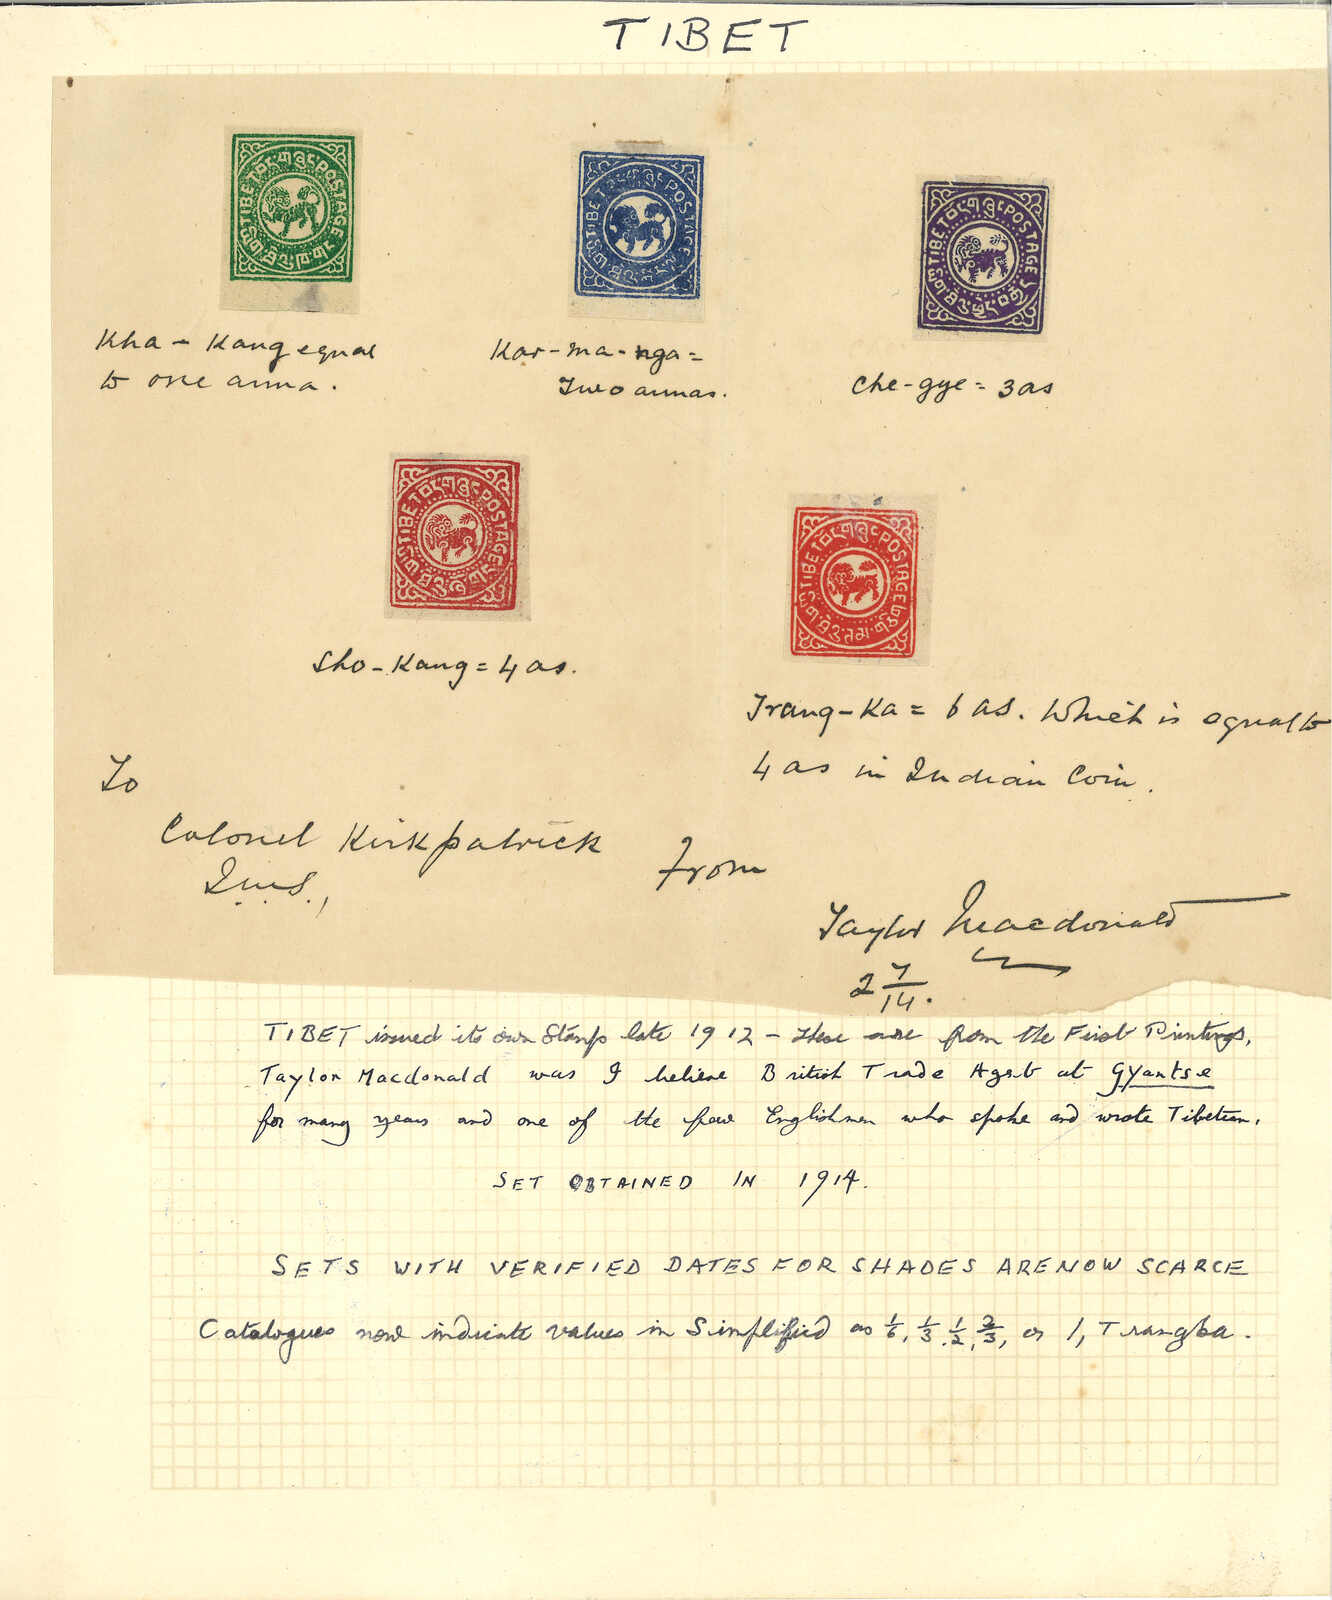 TIBET
TIBET POSTAGE
TIBET POSTAGE
TIBET POSTAGE
Kha - Kang equal
to one anna.
Kar-ma-nga =
Two annas.
Che-gye = 3 as
TIBET POSTAGE
TIBET POSTAGE
Sho-Kang = 4 as.
Trang-Ka = 6 as. Which is equal to
4 as in Indian Coin.
To
Colonel Kirkpatrick
I.M.S.,
From
Taylor Macdonald
2 7/14.
TIBET issued its own Stamps late 1912 - these are from the First Printings.
Taylor Macdonald was I believe British Trade Agent at Gyantse
for many years and one of the few Englishmen who spoke and wrote Tibetan.
SET OBTAINED IN 1914.
SETS WITH VERIFIED DATES FOR SHADES ARE NOW SCARCE
Catalogues now indicate values in Simplified as 1/6, 1/3, 1/2, 2/3, or 1, Trangka.